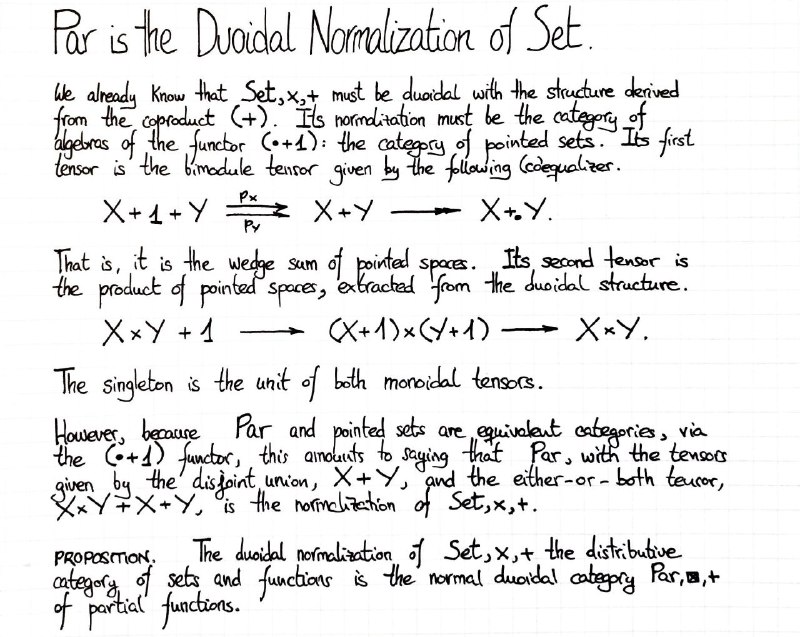 Par is the Duoidal Normalization of Set.
We already know that Set,×,+ must be duoidal with the structure derived
from the coproduct (+). Its normalization must be the category of
algebras of the functor (•+1): the category of pointed sets. Its first
tensor is the bimodule tensor given by the following (co)equalizer.
X+1+Y ⇉ X+Y ⟶ X+•Y.
px
py
That is, it is the wedge sum of pointed spaces. Its second tensor is
the product of pointed spaces, extracted from the duoidal structure.
X×Y + 1 ⟶ (X+1)×(Y+1) ⟶ X×Y.
The singleton is the unit of both monoidal tensors.
However, because Par and pointed sets are equivalent categories, via
the (•+1) functor, this amounts to saying that Par, with the tensors
given by the disjoint union, X+Y, and the either-or-both tensor,
X×Y+X+Y, is the normalization of Set,×,+.
PROPOSITION. The duoidal normalization of Set,×,+ the distributive
category of sets and functions is the normal duoidal category Par,⊠,+
of partial functions.